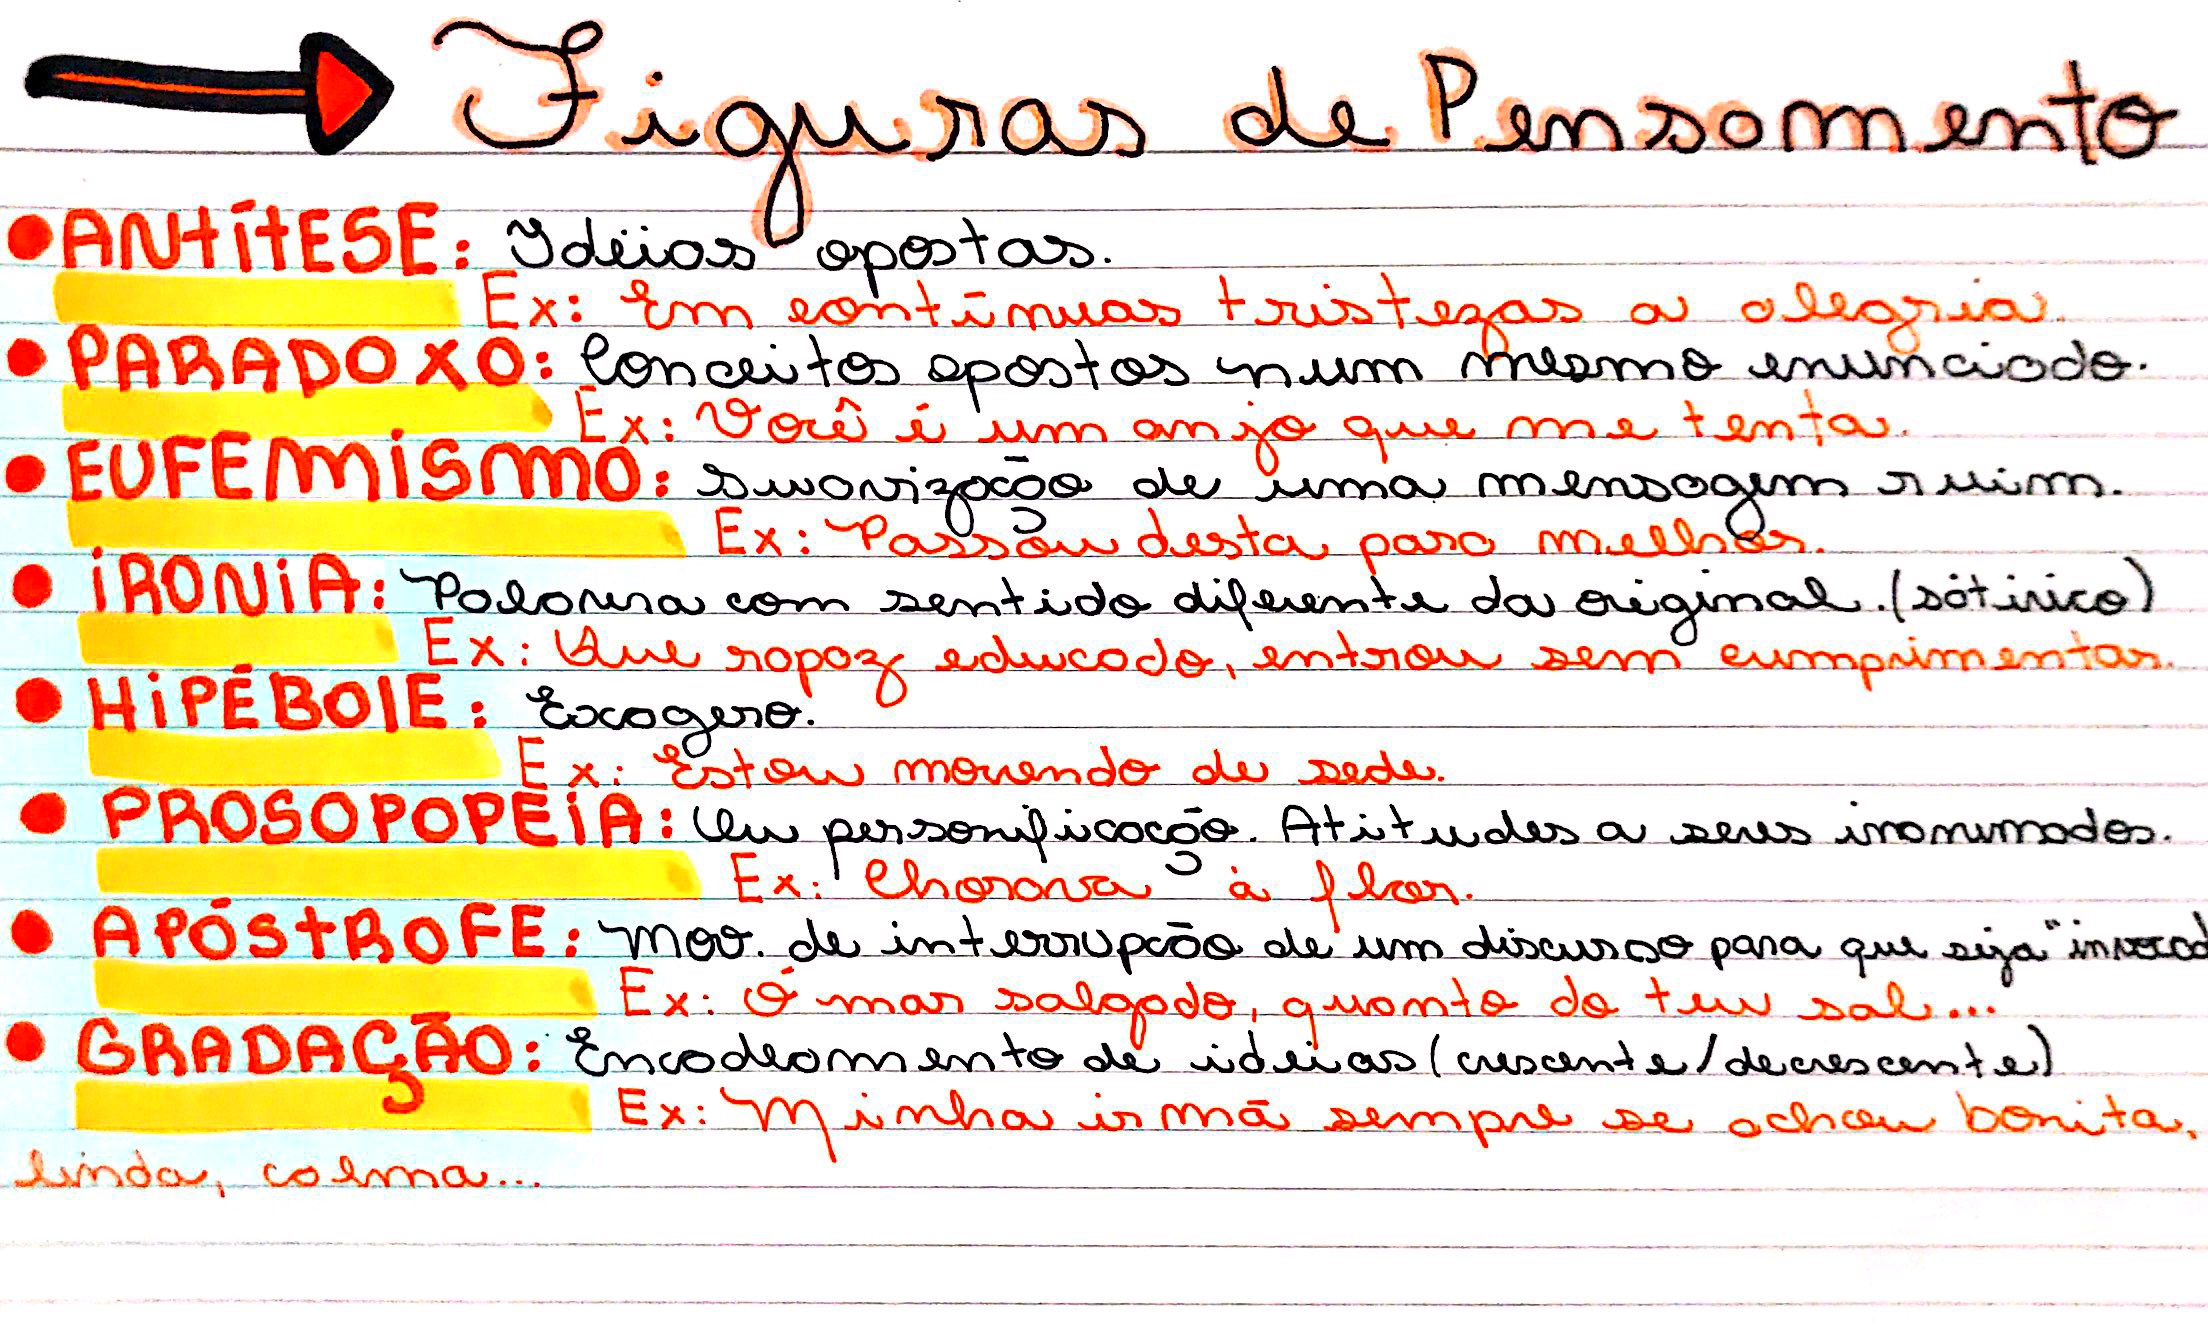 Figuras de Pensamento
• ANTÍTESE: Idéias opostas.
Ex: Em contínuas tristezas a alegria.
• PARADOXO: Conceitos opostos num mesmo enunciado.
Ex: Você é um anjo que me tenta.
• EUFEMISMO: Suavização de uma mensagem ruim.
Ex: Passou desta para melhor.
• IRONIA: Palavra com sentido diferente da original. (satírico)
Ex: Que rapaz educado, entrou sem cumprimentar.
• HIPÉBOLE: Exagero.
Ex: Estou morrendo de sede.
• PROSOPOPEIA: Ou personificação. Atitudes a seres inanimados.
Ex: Chorava a flor.
• APÓSTROFE: Mov. de interrupção de um discurso para que seja "invocad
Ex: Ó mar salgado, quanto do teu sal...
• GRADAÇÃO: Encadeamento de ideias (crescente/decrescente)
Ex: Minha irmã sempre se achou bonita,
linda, calma...